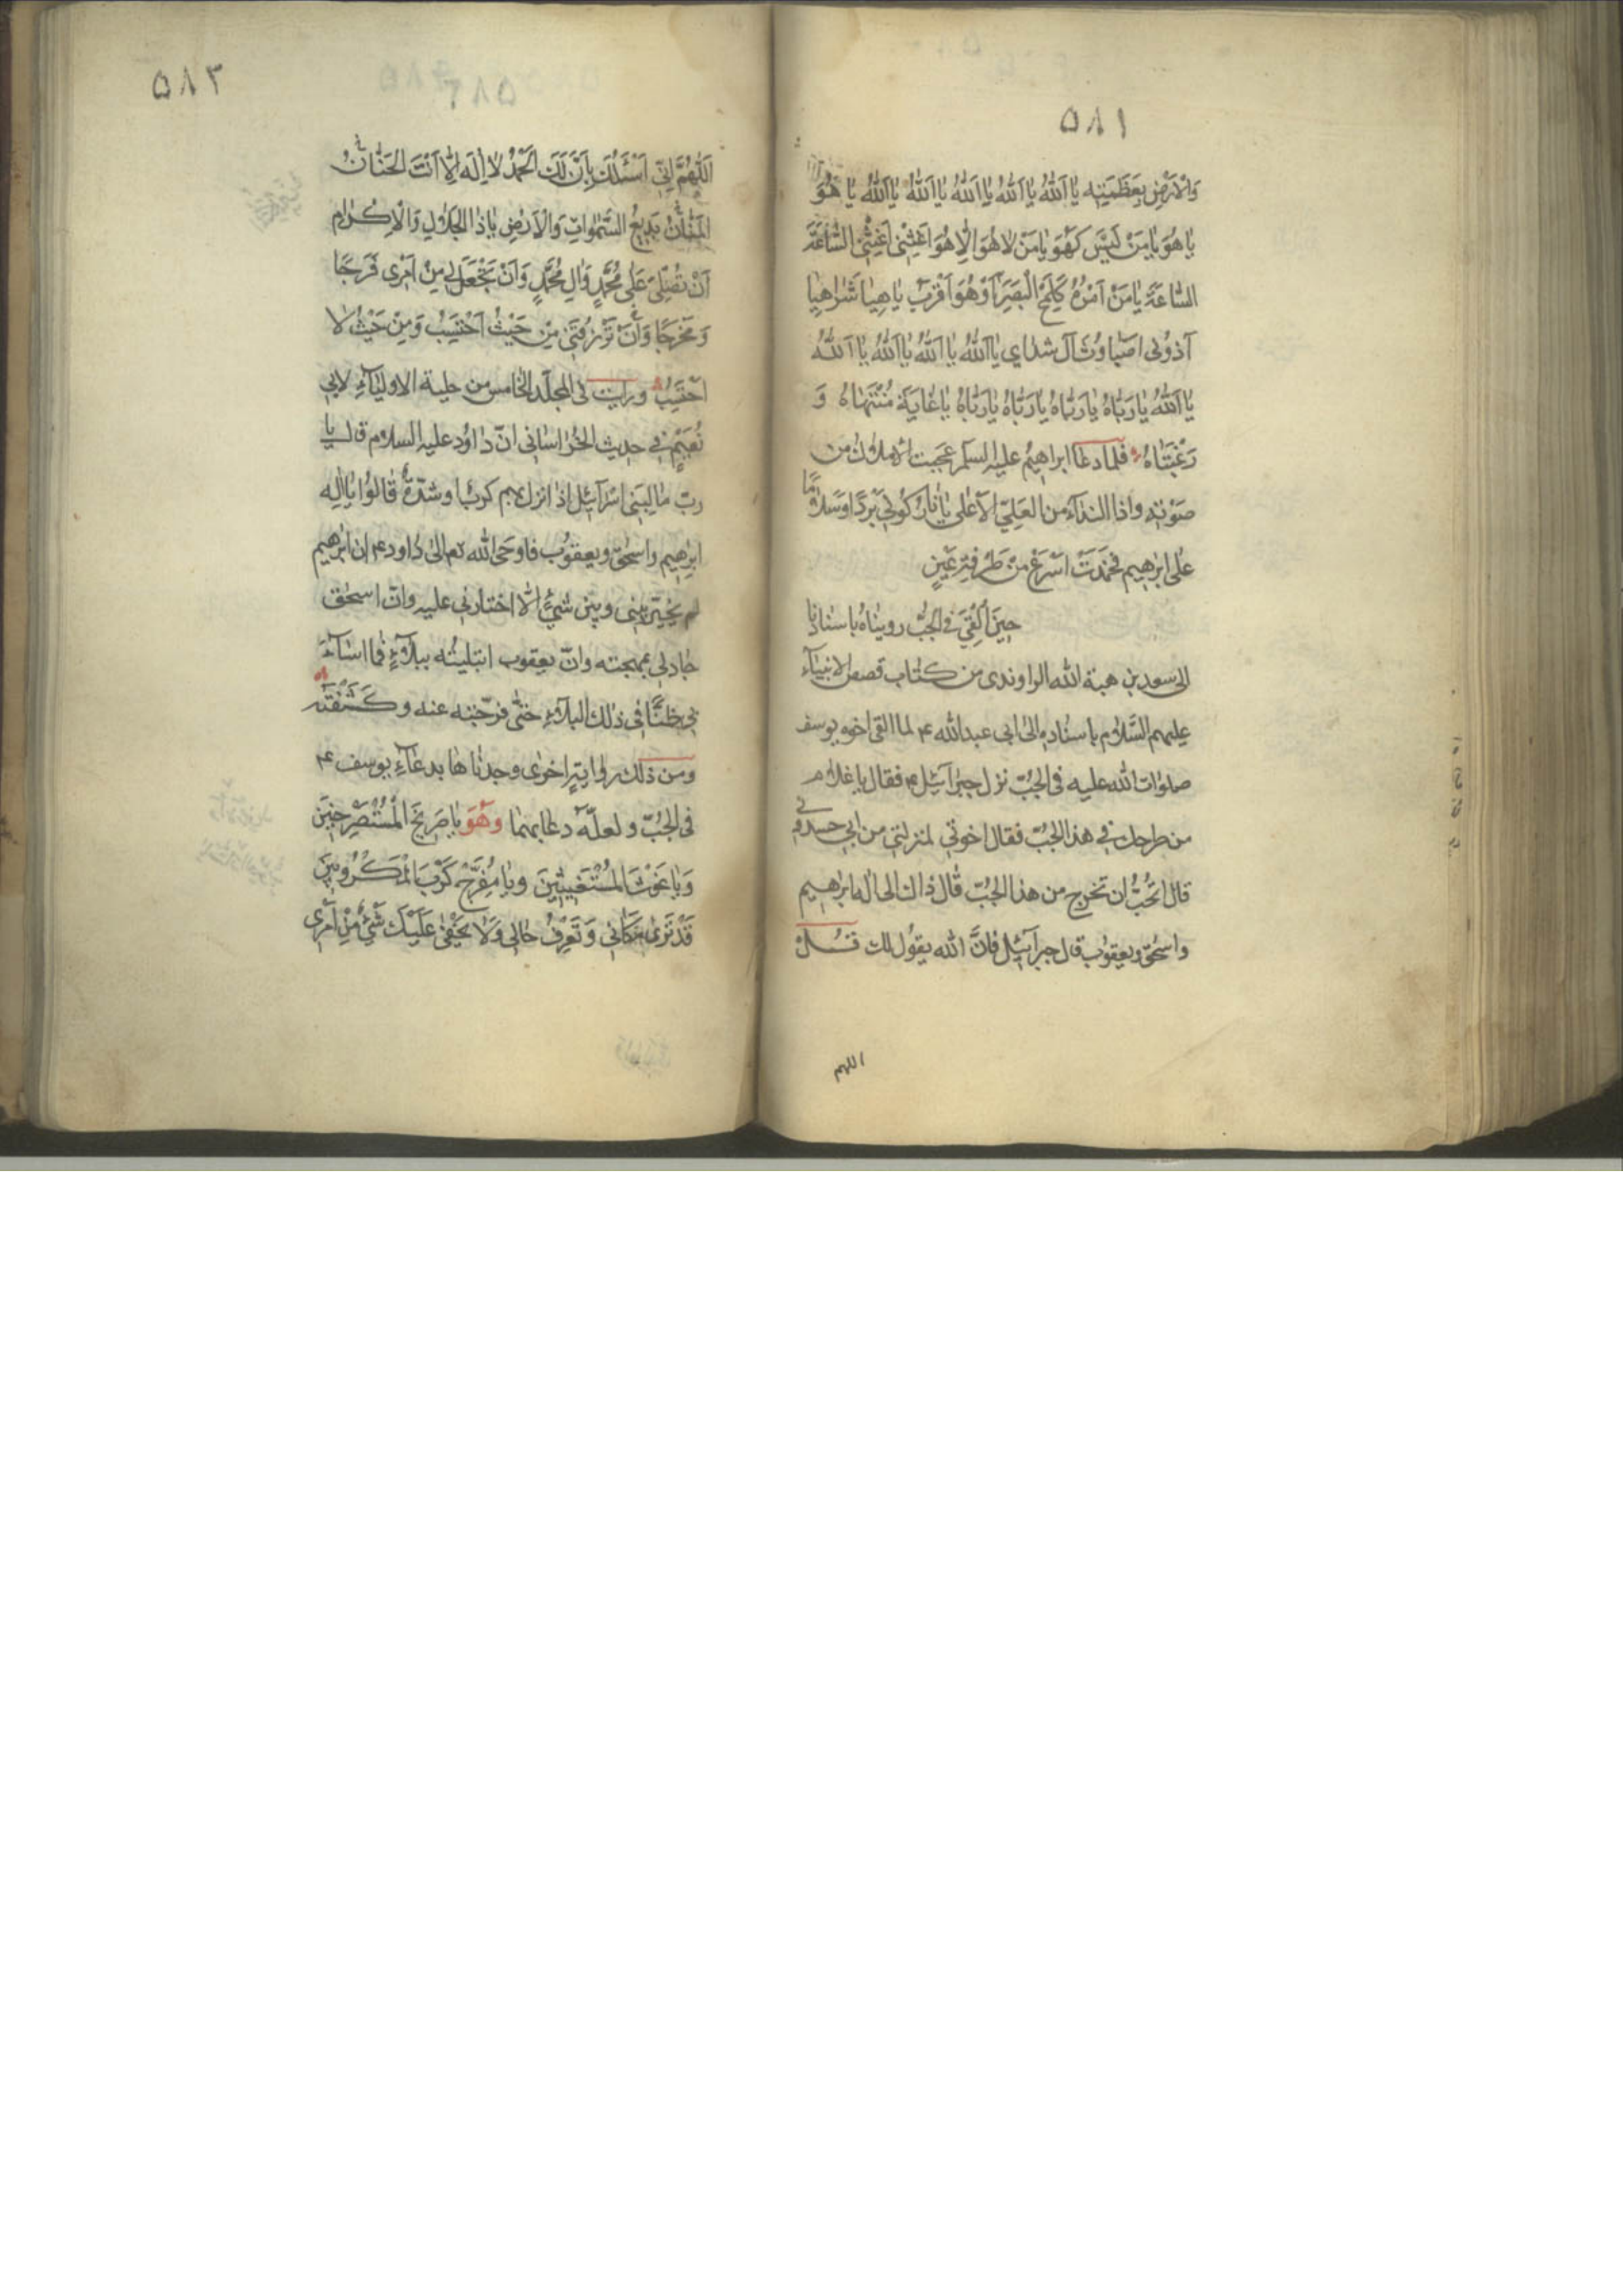 ٥٨١
وَالْاَرْضِ بِعَظَمَتِهِ يٰا اَللّٰهُ يٰا اَللّٰهُ يٰا اَللّٰهُ يٰا اَللّٰهُ يٰا اَللّٰهُ يٰا هُوَ
يٰا هُوَ يٰا مَنْ لَيْسَ كَهُوَ يٰا مَنْ لٰا هُوَ اِلّٰا هُوَ اَغِثْنِى اَغِثْنِى السّٰاعَةَ
السّٰاعَةَ يٰا مَنْ اَمْرُهُ كَلَمْحِ الْبَصَرِ اَوْ هُوَ اَقْرَبُ يٰا هِيٰا شَرٰاهِيٰا
آذونى اصبٰاوث آل شداى يٰا اَللّٰهُ يٰا اَللّٰهُ يٰا اَللّٰهُ يٰا اَللّٰهُ
يٰا اَللّٰهُ يٰا رَبّٰاهُ يٰا رَبّٰاهُ يٰا رَبّٰاهُ يٰا رَبّٰاهُ يٰا غٰايَةَ مُنْتَهٰاهُ وَ
رَغْبَتٰاهُ فلما دعا ابراهيم عليه السلم عجبت الاملاك من
صوته واذا النداء من العلىّ الاعلى يٰا نار كُونى بَرْدًا وَسَلٰامًا
على ابرٰهيم فخمدت اسرع من طرفة عين
حينَ اُلْقِىَ فى الجُبّ رويناه باسنادنا
الى سعد بن هبة الله الراوندى من كتاب قصص الانبيآء
عليهم السَّلٰام باسناده الى ابى عبدالله ع لما القى اخوه يوسف
صلوات الله عليه فى الجبّ نزل جبرآئيل ع فقال يا غلام
من طرحك فى هذا الجبّ فقال اخوتى لمنزلتى من ابى حسدونى
قال اتحبّ ان تخرج من هذا الجبّ قال ذاك الى اله ابراهيم
واسحٰق ويعقوب قال جبرآئيل فانّ الله يقول لك قُل
اللهم
٥٨٢
٥٨٣
اَللّٰهُمَّ اِنّى اَسْئَلُكَ بِاَنَّ لَكَ الْحَمْدُ لٰا اِلٰهَ اِلّٰا اَنْتَ الْحَنّٰانُ
الْمَنّٰانُ بَديعُ السَّمٰوٰاتِ وَالْاَرْضِ يٰا ذَا الْجَلٰالِ وَالْاِكْرٰام
اَنْ تُصَلّىَ عَلٰى مُحَمَّدٍ وَاٰلِ مُحَمَّدٍ وَاَنْ تَجْعَلَ لى مِنْ اَمْرى فَرَجًا
وَمَخْرَجًا وَاَنْ تَرْزُقَنى مِنْ حَيْثُ اَحْتَسِبُ وَمِنْ حَيْثُ لٰا
اَحْتَسِبُ ورايت فى المجلّد الخامس من حلية الاوليآء لابى
نُعَيْمٍ فى حديث الخراسانى انّ داوُد عليه السلام قال يا
ربّ ما لِبَنى اسرآئيل اذا نزل بهم كرب او شدّة قالوا يا اله
ابرٰهيم واسحٰق ويعقوب فاوحى الله تع الى داود ع ان ابرٰهيم
لم يخيّر بينى وبين شىءٍ الّا اختارنى عليه وانّ اسحٰق
جادلى بمهجته وانّ يعقوب ابتليتُه ببلآءٍ فما اسآءَ
بى ظنًّا فى ذلك البلآء حتّى فرّجته عنه وكَشَفْتُه
ومن ذلك رواية اخرى وجدناها بدعآء يوسف ع
فى الجُبّ ولعلّه دعا بهما وَهُوَ يٰا صَريخَ الْمُسْتَصْرِخينَ
وَيٰا غَوْثَ الْمُسْتَغيثينَ وَيٰا مُفَرِّجَ كَرْبِ الْمَكْرُوبينَ
قَدْ تَرٰى مَكٰانى وَتَعْرِفُ حٰالى وَلٰا يَخْفٰى عَلَيْكَ شَىْءٌ مِنْ اَمْرى